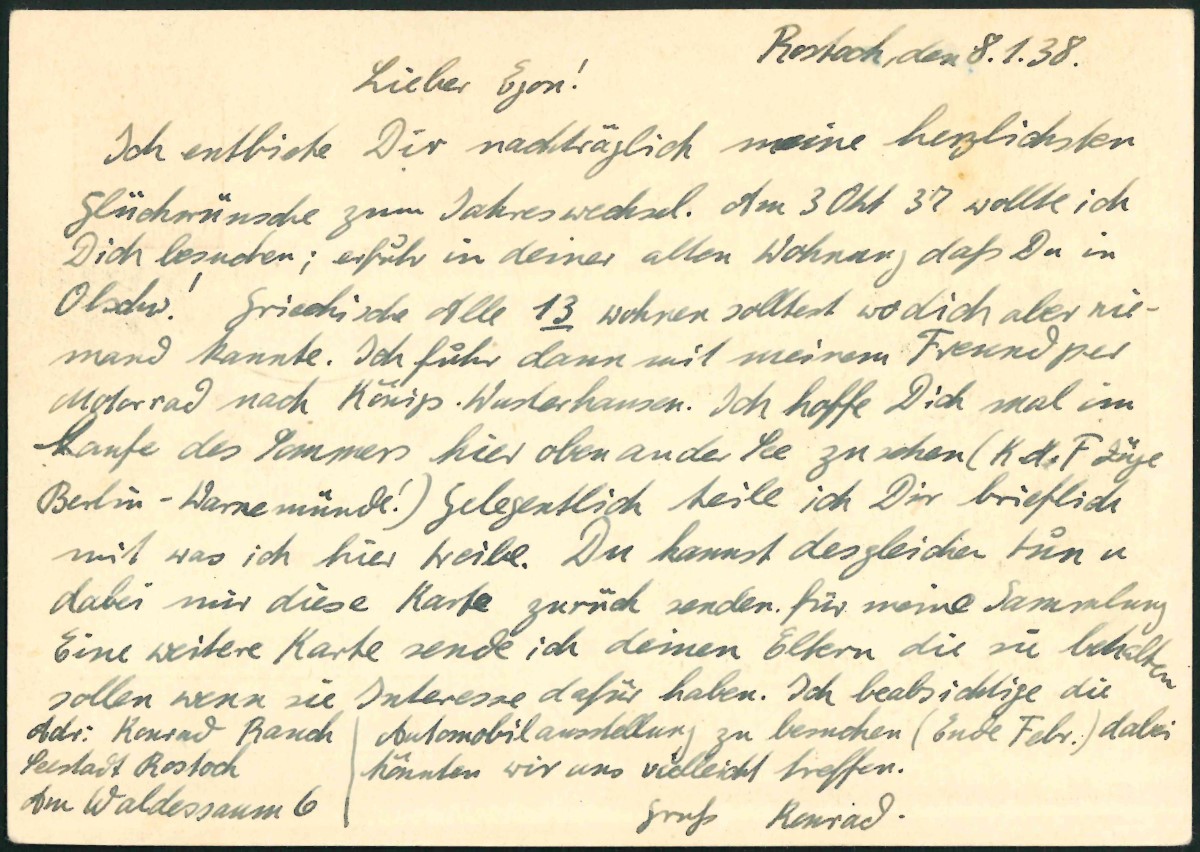 Rostock, den 8.1.38.
Lieber Egon!
Ich entbiete Dir nachträglich meine herzlichsten
Glückwünsche zum Jahreswechsel. Am 3 Okt 37 wollte ich
Dich besuchen; erfuhr in deiner alten Wohnung daß Du in
Olschw! Griechische Alle 13 wohnen solltest wo dich aber nie-
mand kannte. Ich fuhr dann mit meinem Freund per
Motorrad nach Königs. Wusterhausen. Ich hoffe Dich mal im
Laufe des Sommers hier oben an der See zu sehen (K.d.F Züge
Berlin - Warnemünde!) Gelegentlich teile ich Dir brieflich
mit was ich hier treibe. Du kannst desgleichen tun u
dabei mir diese Karte zurück senden. für meine Sammlung
Eine weitere Karte sende ich deinen Eltern die sie behalten
sollen wenn sie Interesse dafür haben. Ich beabsichtige die
Automobilausstellung zu besuchen (Ende Febr.) dabei
könnten wir uns vielleicht treffen.
Gruß Konrad.
Adr: Konrad Rauch
Seestadt Rostock
Am Waldessaum 6